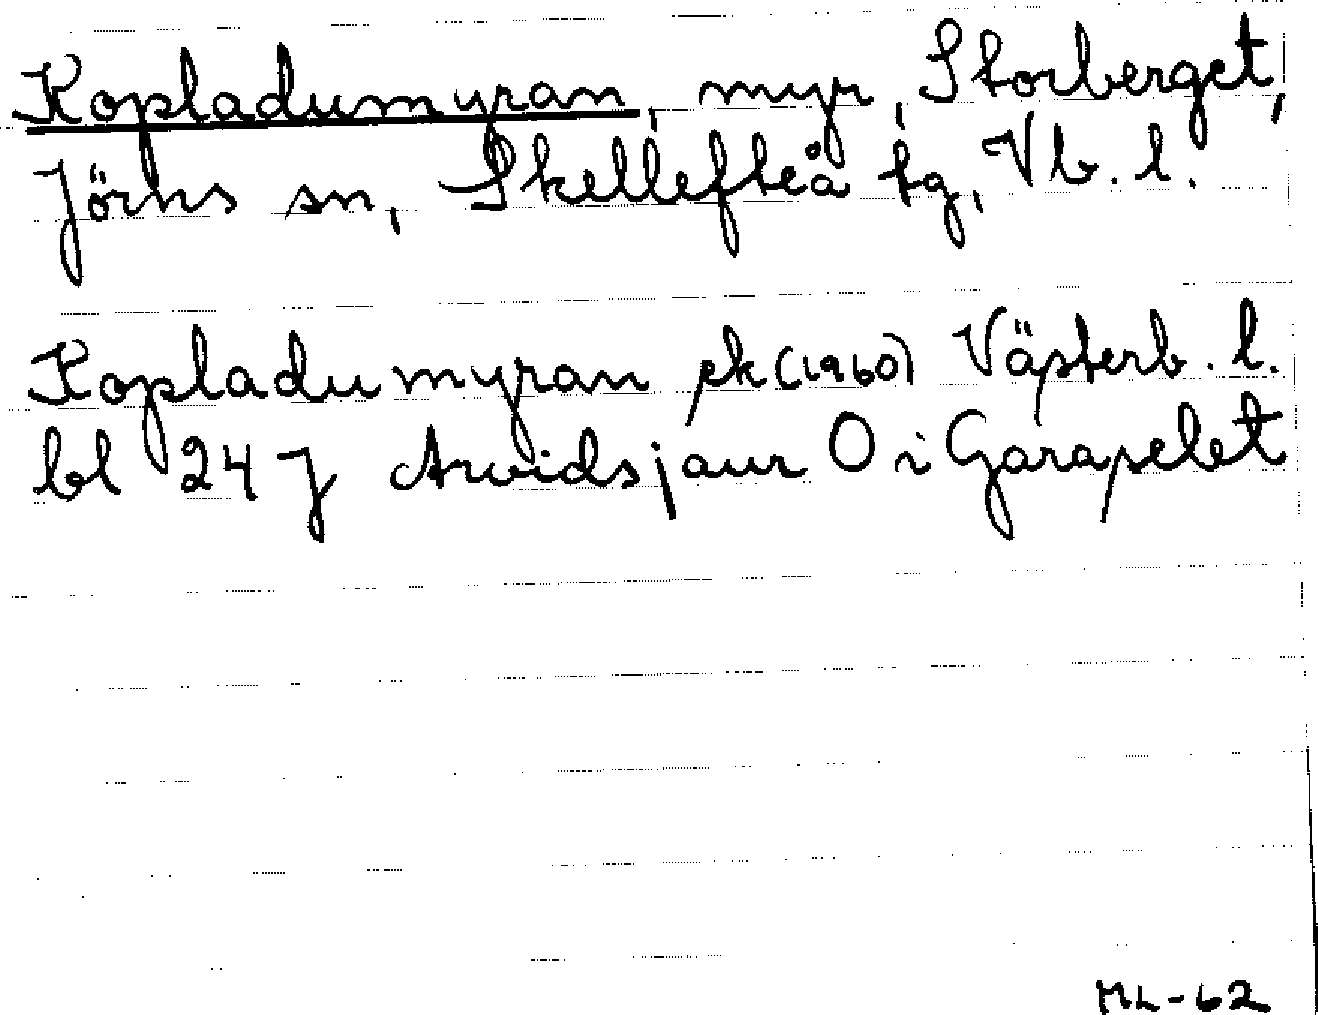 Kopladumyran, myr, Storberget,
Jörns sn, Skellefteå tg, Vb. l.
Kopladumyran ek (1960) Västerb. l.
bl 24 J Arvidsjaur O i Garaselet
ML-62